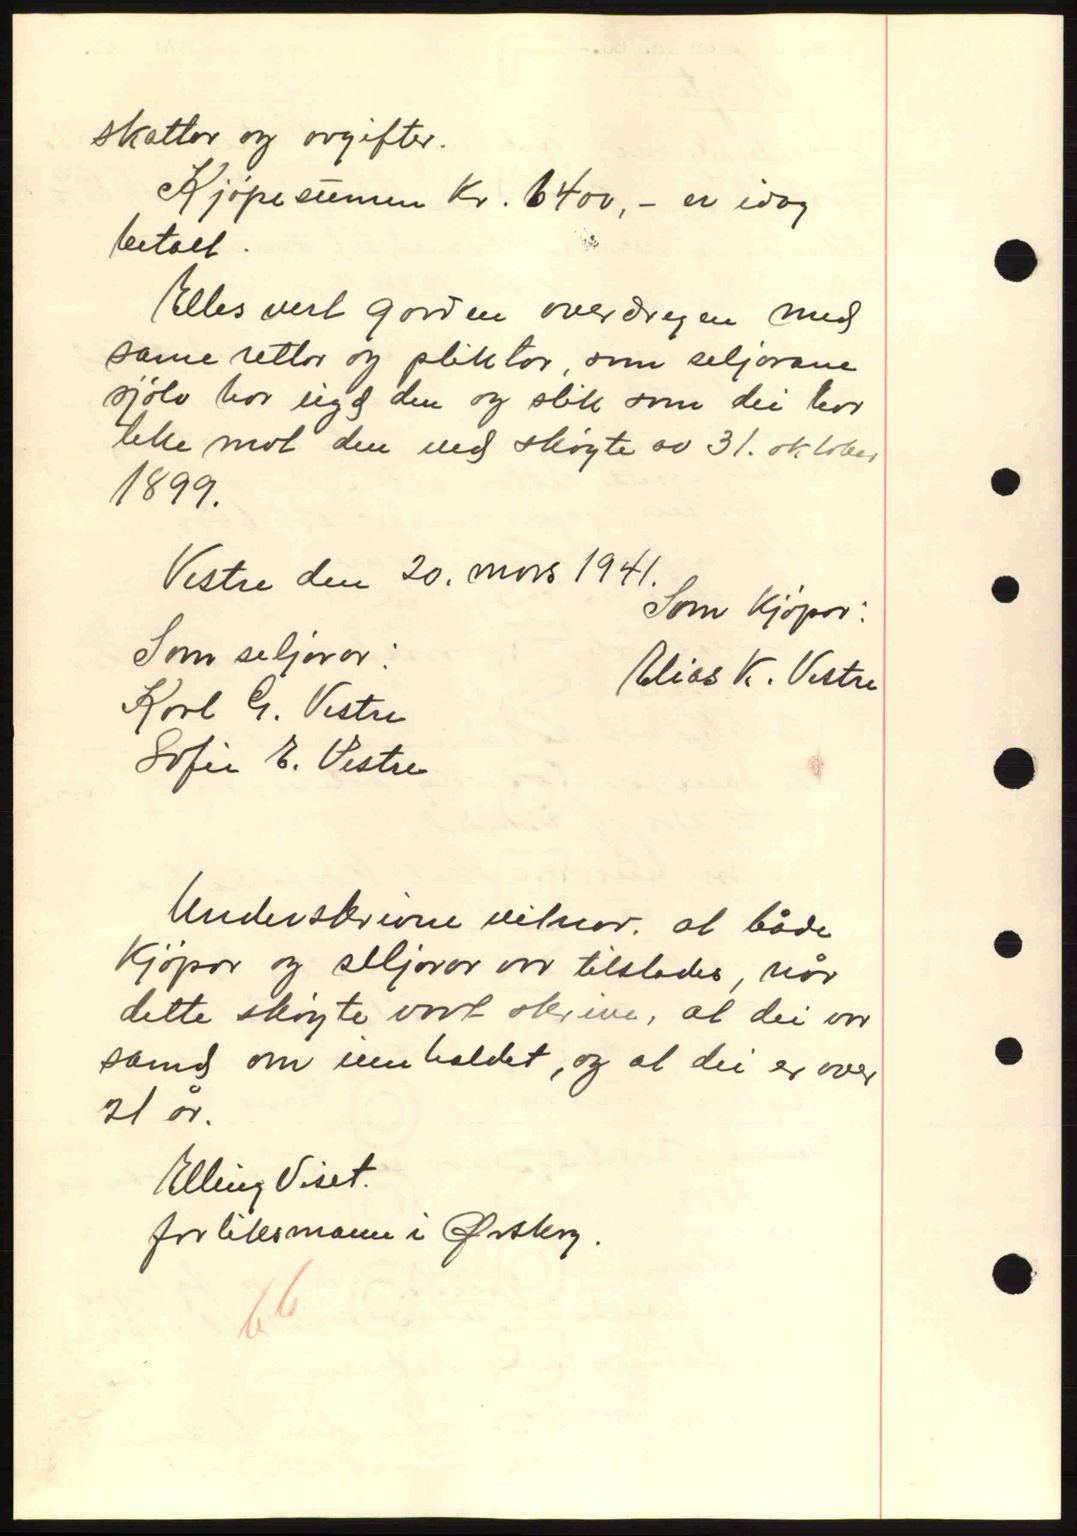 skattar og avgifter.
Kjöpesummen Kr. 6400,- er idag
betalt.
Elles vert garden overdregen med
same rettar og pliktar, som seljarane
sjölv har ügd den og slik som dei har
teke mot den ved sköyte av 31. oktober
1899.
Vestre den 20. mars 1941.
Som kjöpar:
Som seljarar:
Elias K. Vestre
Karl G. Vestre
Sofie E. Vestre
Underskrivne vitnar. at både
kjöpar og seljarar var tilstades, når
dette sköyte vart skrive, at dei var
samd om innhaldet, og at dei er over
21 år.
Elling Viset.
forliksmann i Ørskog.
66